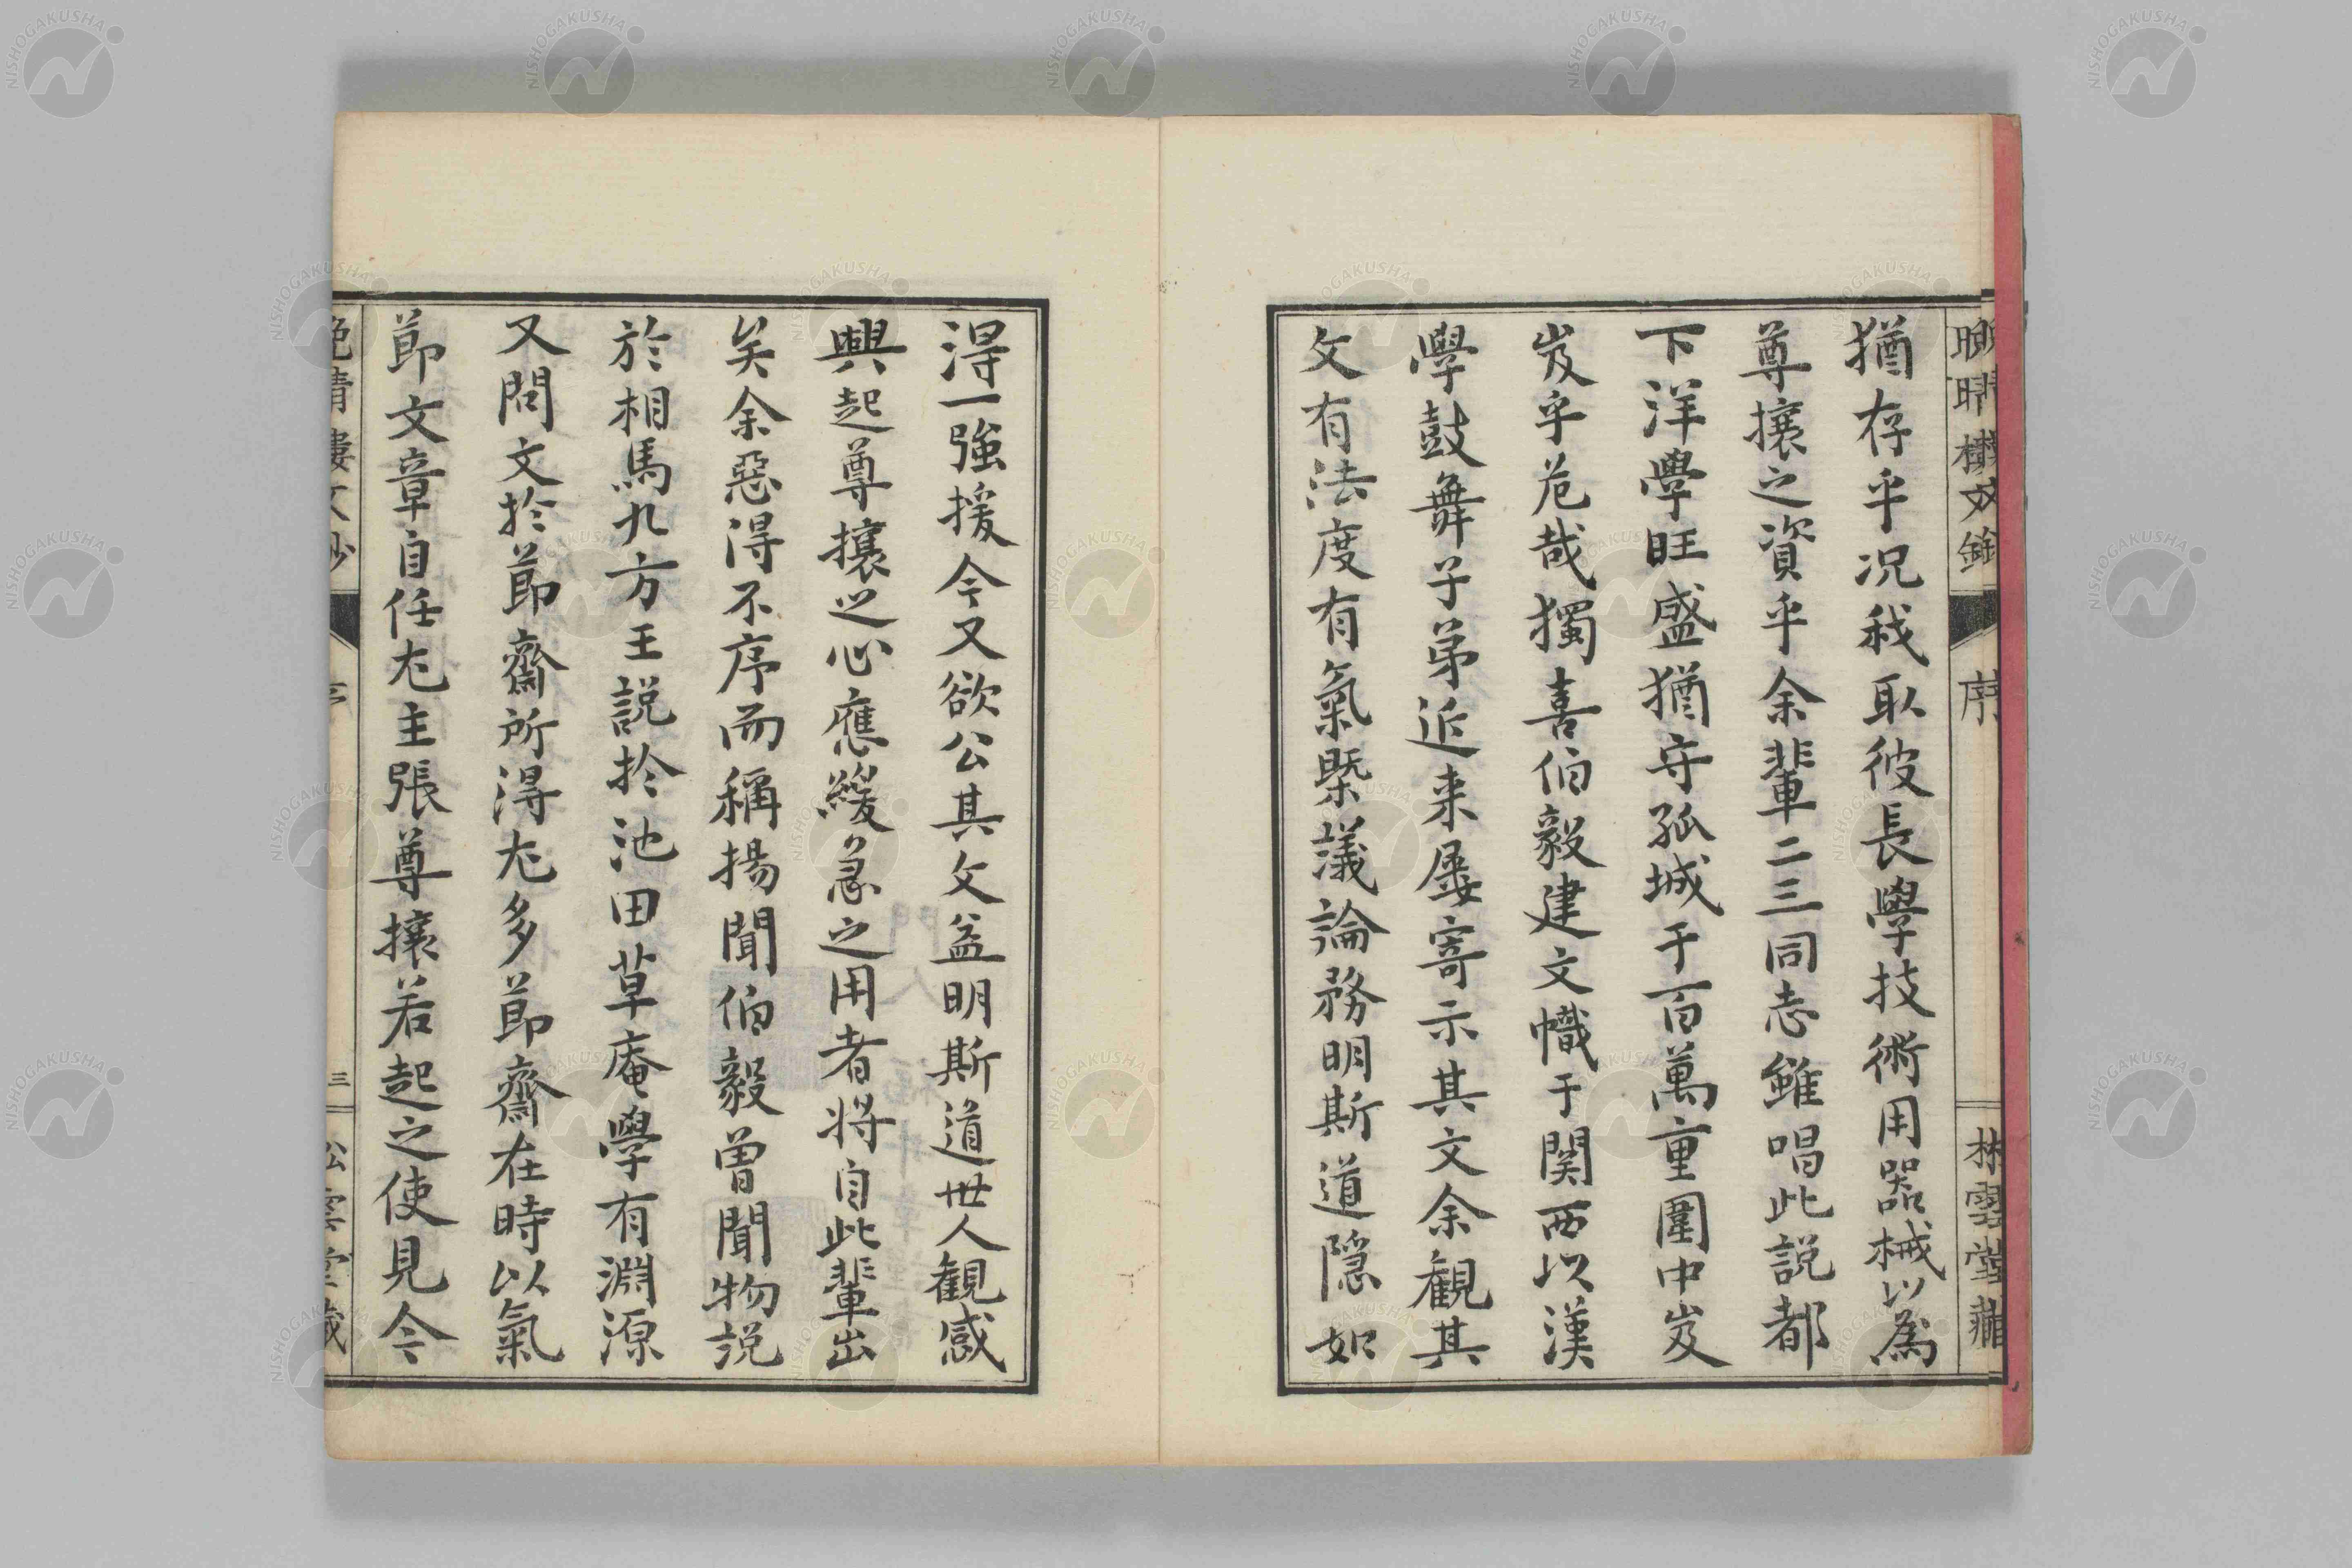 猶存乎況我取彼長學技術用器械以為
尊攘之資乎余輩二三同志雖唱此説都
下洋學旺盛猶守孤城于百萬重圍中岌
岌乎危哉獨喜伯毅建文幟于関西以漢
學鼓舞子弟近来屡寄示其文余観其
文有法度有氣槩議論務明斯道隠如
得一強援今又欲公其文益明斯道世人観感
興起尊攘之心應緩急之用者将自此輩出
矣余惡得不序而稱揚聞伯毅曽聞物説
於相馬九方王説於池田草庵學有淵源
又問文於莭齋所得尤多莭齋在時以氣
莭文章自任尤主張尊攘若起之使見今
序
三
NISHOGAKUSHA